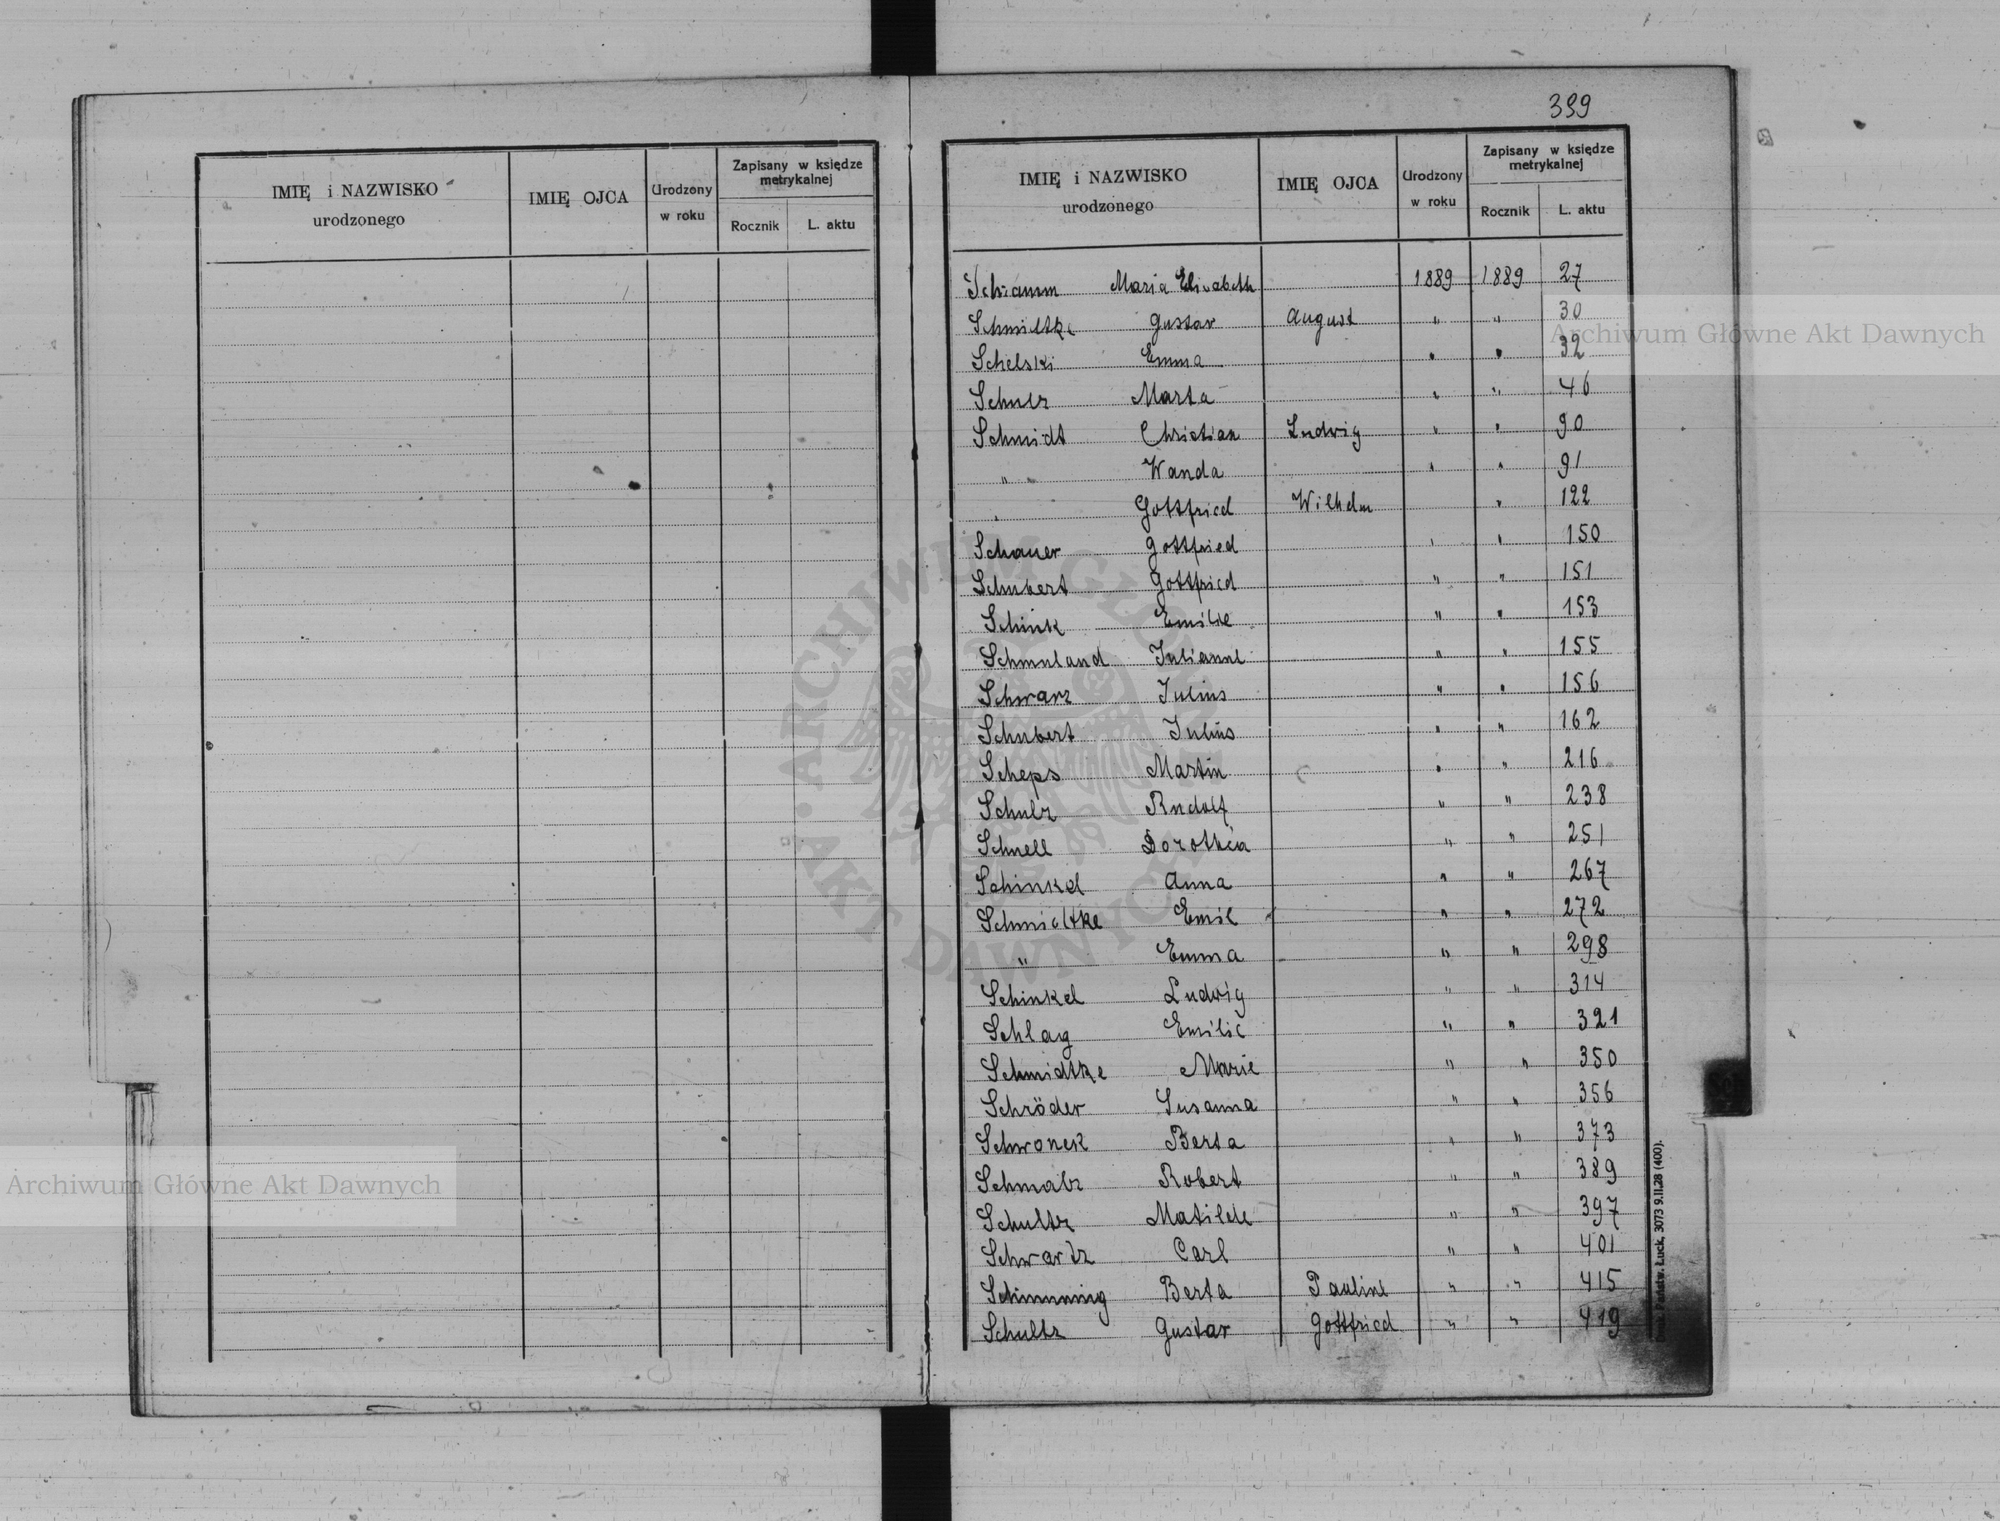 399
IMIĘ i NAZWISKO
urodzonego
IMIĘ OJCA
Urodzony
w roku
Zapisany w księdze
metrykalnej
Rocznik
L. aktu
IMIĘ i NAZWISKO
urodzonego
IMIĘ OJCA
Urodzony
w roku
Zapisany w księdze
metrykalnej
Rocznik
L. aktu
Schramm Maria Elisabeth 1889 1889 27
Schmiltke Gustav August " " 30
Schelski Emma " " 32
Schulz Marta " " 46
Schmidt Christian Ludwig " " 90
" Wanda " " 91
" Gottfried Wilhelm " 122
Schauer Gottfried " " 150
Schubert Gottfried " " 151
Schink Emilie " " 153
Schmuland Juliane " " 155
Schwarz Julius " " 156
Schubert Julius " " 162
Scheps Martin " " 216
Schulz Rudolf " " 238
Schnell Dorothea " " 251
Schinkel Anna " " 267
Schmidtke Emil " " 272
" Emma " " 298
Schinkel Ludwig " " 314
Schlag Emilie " " 321
Schmidtke Marie " " 350
Schröder Susanna " " 356
Schwonek Berta " " 373
Schmalz Robert " " 389
Schultz Matilde " " 397
Schwartz Carl " " 401
Schimmnig Berta Pauline " " 415
Schultz Gustav Gottfried " " 419
Państw. Łuck, 3073 9.II.28 (400).
Archiwum Główne Akt Dawnych
Archiwum Główne Akt Dawnych
ARCHIWUM GŁÓWNE
AKT DAWNYCH